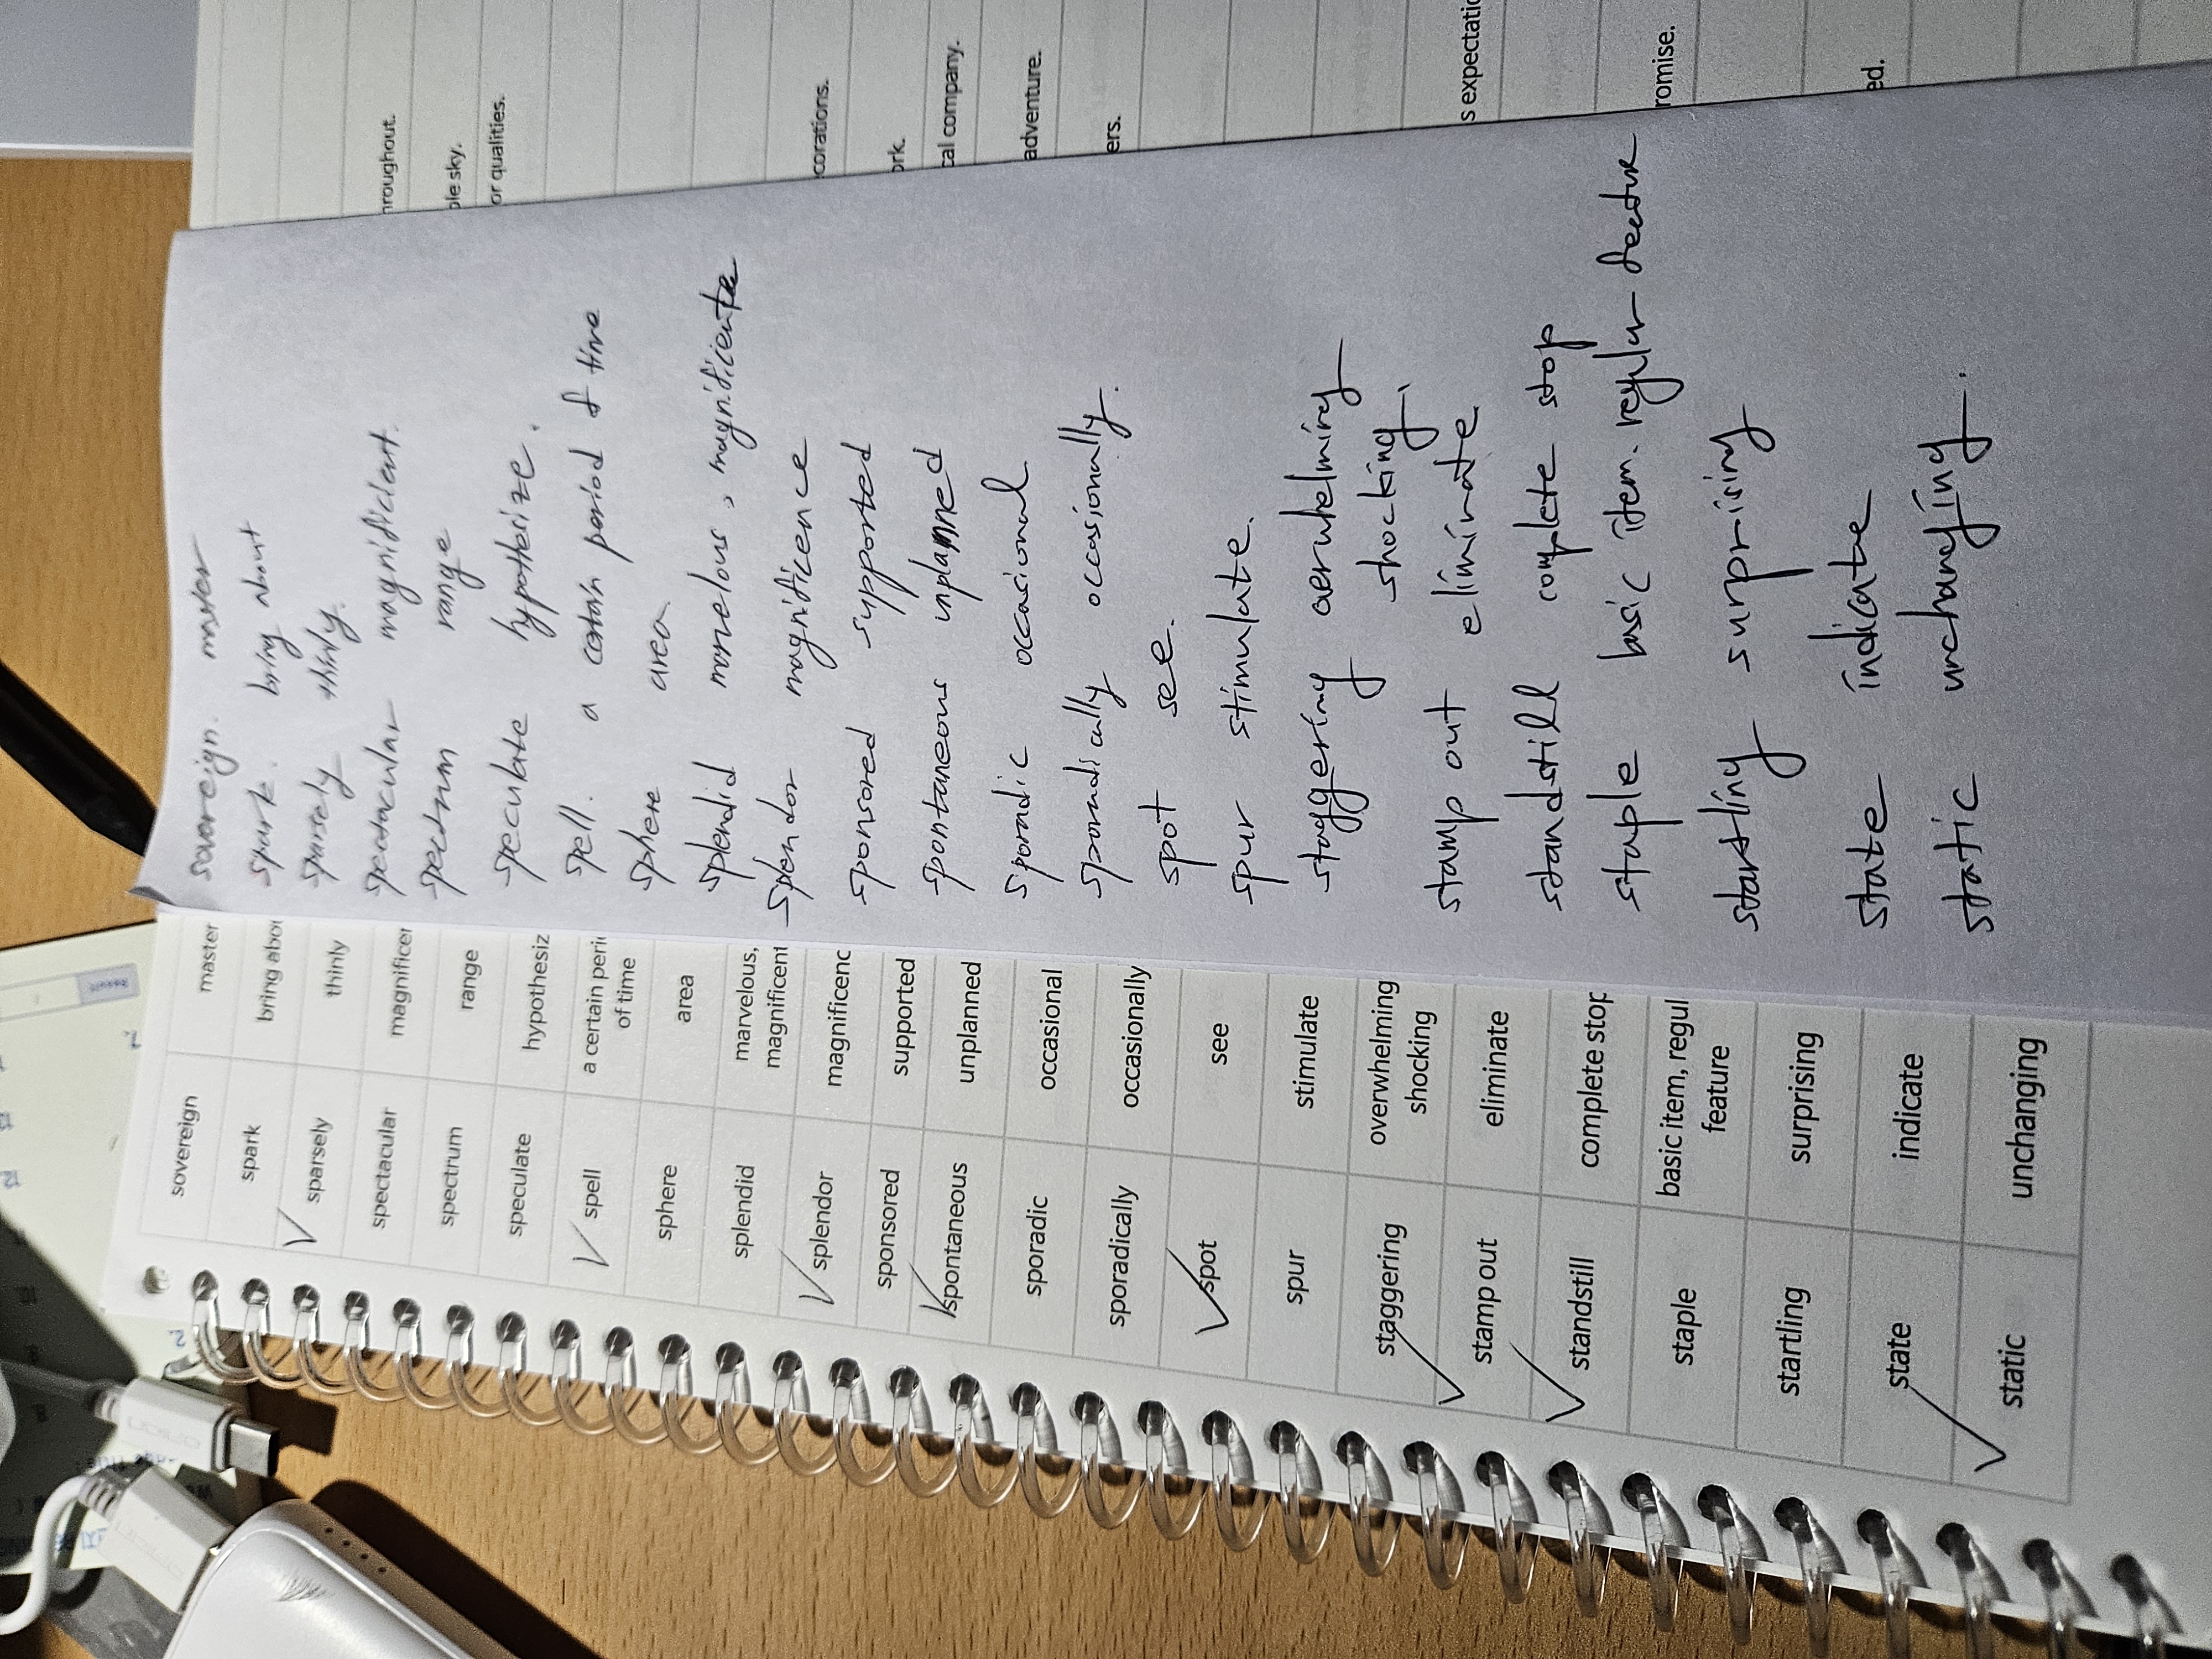 sovereign
master
spark
bring abou
sparsely
thinly
spectacular
magnificer
spectrum
range
speculate
hypothesiz
spell
a certain peri
of time
sphere
area
splendid
marvelous,
magnificent
splendor
magnificenc
sponsored
supported
spontaneous
unplanned
sporadic
occasional
sporadically
occasionally
spot
see
spur
stimulate
staggering
overwhelming
shocking
stamp out
eliminate
standstill
complete stop
staple
basic item, regul
feature
startling
surprising
state
indicate
static
unchanging
sovereign. master
spark. bring about
sparsely thinly.
spectacular magnificient.
spectrum range
speculate hypothesize.
spell. a certain period of time
sphere area
splendid marvelous, magnificient
splendor magnificence
sponsored supported
spontaneous unplanned
sporadic occasional
sporadically occasionally.
spot see.
spur stimulate.
staggering overwhelming
shocking.
stamp out eliminate
standstill complete stop
staple basic item. regular featur
startling surprising
state indicate
static unchanging.
hroughout.
ple sky.
or qualities.
corations.
ork.
cal company.
adventure.
ers.
s expectatio
romise.
ed.